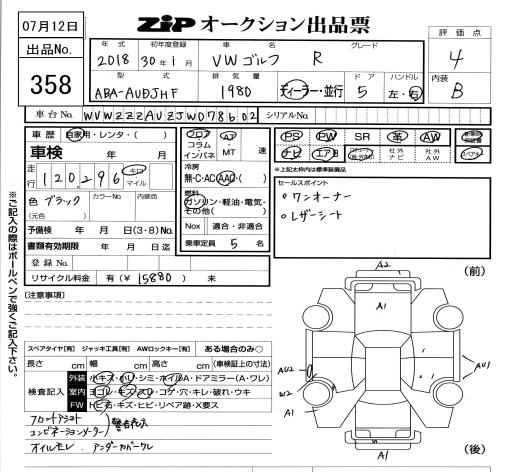 07月12日
出品No.
358
ZIP オークション出品票
年 式
初年度登録
車 名
グレード
2018
30年1月
VW ゴルフ R
型 式
排 気 量
ド ア
ハンドル
ABA-AUDJHF
1980
ディーラー・並行
5
左・右
評 価 点
4
内装
B
車台No.
WVWZZZAUZJW078602
シリアルNo.
車 歴
自家用・レンタ・( )
車検
年 月
走行
120,296
キロ
マイル
色 ブラック
(元色 )
カラーNo.
内装色
予備検 年 月 日(3・8)No.
書類有効期限 年 月 日迄
登 録 No.
リサイクル料金 有(¥15880) 未
フロア
コラム
インパネ
AT
・
MT
速
冷房
無・C・AC・AAC・( )
燃料
ガソリン・軽油・電気・
その他( )
Nox
適合・非適合
乗車定員 5 名
PS
PW
SR
革
AW
ナビ
エアB
社外
ナビ
社外
AW
※上記太枠内は標準装備品
セールスポイント
○ワンオーナー
○レザーシート
※ご記入の際はボールペンで強くご記入下さい。
[注意事項]
スペアタイヤ[有] ジャッキ工具[有] AWロックキー[有] ある場合のみ○
長さ cm 幅 cm 高さ cm (車検証上の寸法)
検査記入
外装
小キズ・小U・シミ・ホイルA・ドアミラー(A・ワレ)
室内
ヨゴレ・キズ・スリ・コゲ・穴・キレ・破れ・ウキ
FW
トビ石・キズ・ヒビ・リペア跡・X要ス
フロントアシスト
コンビネーションメーター
警告表示
オイルモレ、アンダーカバーワレ
(前)
A2
A1
AU2
W2
A1
AU1
A1
(後)